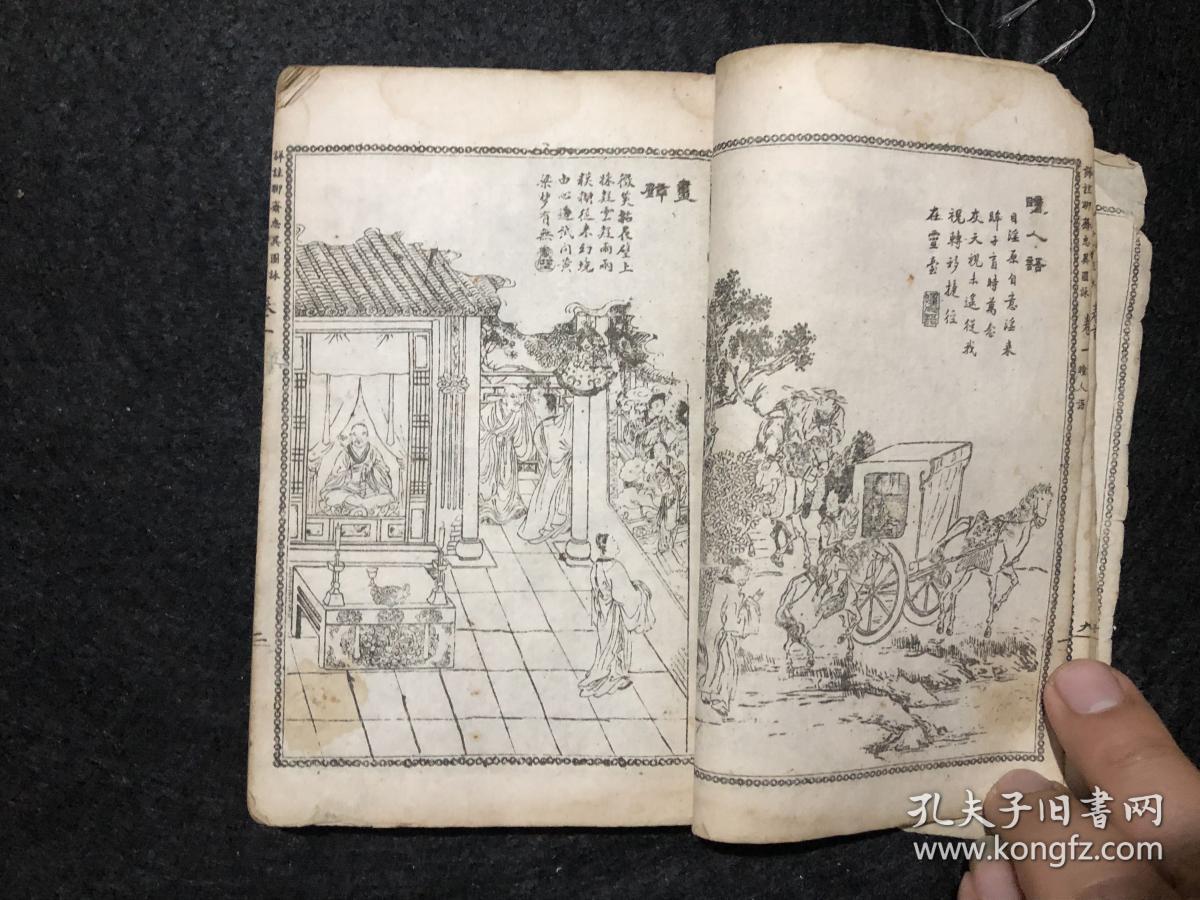 詳註聊齋志異圖詠 卷一 瞳人語
瞳人語
目淫原自意淫来
眸子盲時萬念
灰天視未遙從我
視轉移捷徑
在靈臺
畫壁
微笑拈花壁上
採疑雲疑雨兩
模糊從来幻境
由心造試問黃
梁夢有無
詳註聊齋志異圖詠 卷一
孔夫子旧书网
www.kongfz.com